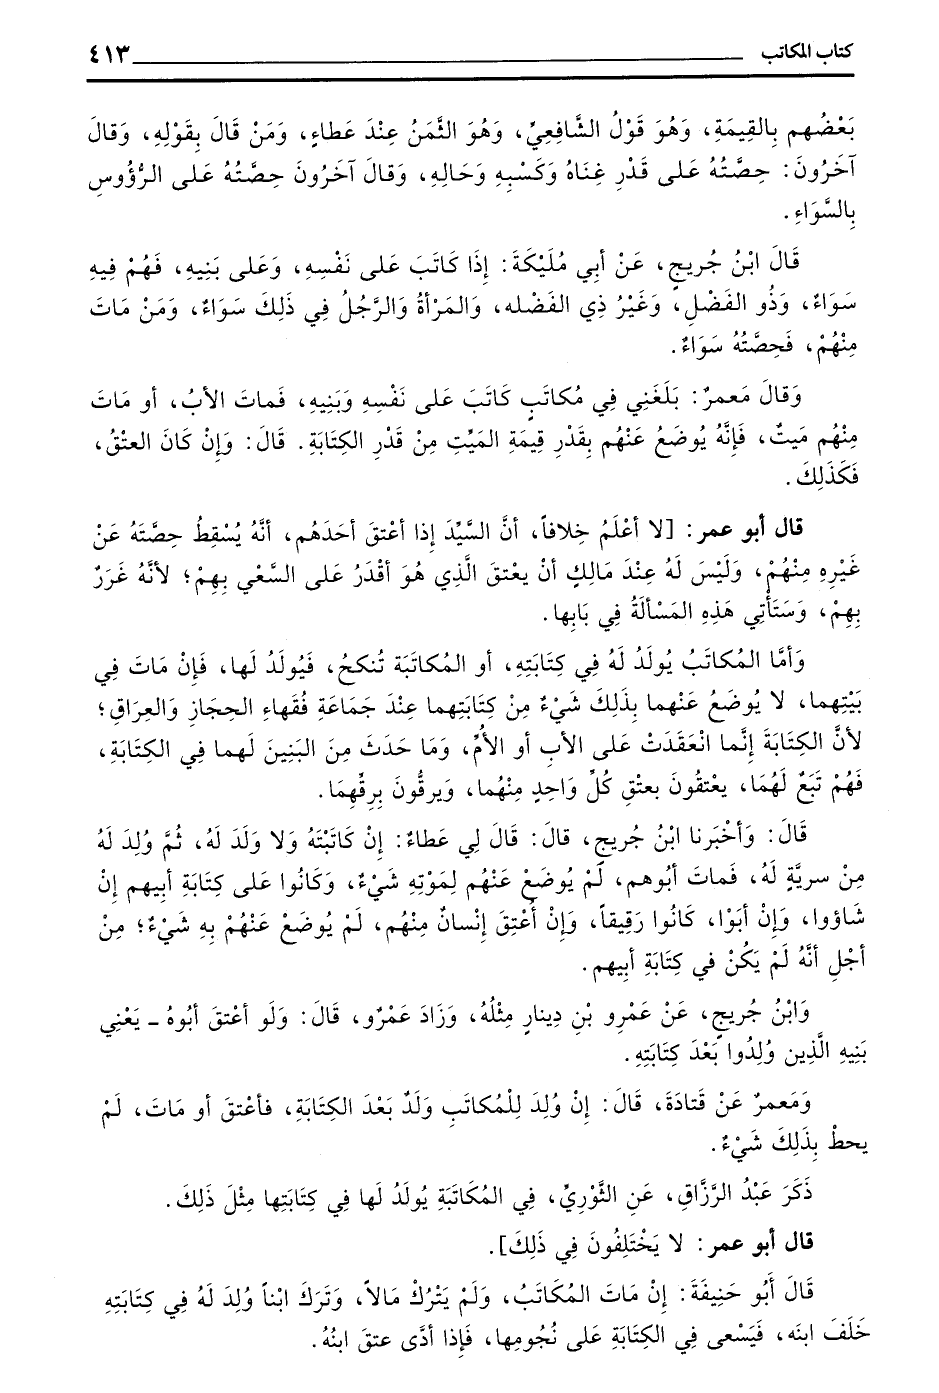 كتاب المكاتب ٤١٣
بَعْضُهم بِالقِيمَةِ، وَهُوَ قَوْلُ الشَّافِعِيِّ، وَهُوَ الثَّمَنُ عِنْدَ عَطاءٍ، وَمَنْ قَالَ بِقَوْلِهِ، وَقالَ
آخَرُونَ: حِصَّتُهُ عَلى قَدْرِ غِنَاهُ وَكَسْبِهِ وَحَالِهِ، وَقالَ آخَرُونَ حِصَّتُهُ عَلى الرُّؤُوسِ
بِالسَّوَاءِ.
قَالَ ابْنُ جُريجٍ، عَنْ أبي مُلَيْكَةَ: إِذَا كَاتَبَ عَلى نَفْسِهِ، وَعَلى بَنِيهِ، فَهُمْ فِيهِ
سَوَاءٌ، وَذُو الفَضْلِ، وَغَيْرُ ذِي الفَضْله، وَالمَرْأةُ وَالرَّجُلُ فِي ذَلِكَ سَوَاءٌ، وَمَنْ مَاتَ
مِنْهُمْ، فَحِصَّتُهُ سَوَاءٌ.
وَقالَ مَعمرٌ: بَلَغَنِي فِي مُكاتَبٍ كَاتَبَ عَلى نَفْسِهِ وَبَنِيهِ، فَماتَ الأبُ، أو مَاتَ
مِنْهُم مَيتٌ، فَإنَّهُ يُوضَعُ عَنْهُم بِقَدْرِ قِيمَةِ المَيِّتِ مِنْ قَدْرِ الكِتَابَةِ. قَالَ: وَإنْ كَانَ العتْقُ،
فَكَذَلِكَ.
قال أبو عمر: [لا أعْلَمُ خِلافاً، أنَّ السَّيِّدَ إذا أعْتقَ أحَدَهُم، أنَّهُ يُسْقِطُ حِصَّتَهُ عَنْ
غَيْرِهِ مِنْهُمْ، وَلَيْسَ لَهُ عِنْدَ مَالِكٍ أنْ يعْتقَ الَّذِي هُوَ أقْدَرُ عَلى السَّعْي بِهِمْ؛ لأنَّهُ غَرَرٌ
بِهِمْ، وَسَتَأْتِي هَذِهِ المَسْألَةُ فِي بَابِها.
وَأمَّا المُكاتَبُ يُولَدُ لَهُ فِي كِتَابَتِهِ، أو المُكَاتَبَة تُنكحُ، فَيُولَدُ لَها، فَإنْ مَاتَ فِي
بَيْتِهِما، لا يُوضَعُ عَنْهُما بِذَلِكَ شَيْءٌ مِنْ كِتابَتِهِما عِنْدَ جَمَاعَةِ فُقَهاءِ الحِجَازِ وَالعِراقِ؛
لأنَّ الكِتَابَةَ إنَّما انْعَقَدَتْ عَلى الأبِ أو الأُمِّ، وَمَا حَدَثَ مِنَ البَنِينَ لَهما فِي الكِتَابَةِ،
فَهُمْ تَبَعٌ لَهُمَا، يعْتقُونَ بعتْقِ كُلِّ وَاحِدٍ مِنْهُما، وَيرقُّونَ بِرِقِّهِمَا.
قَالَ: وَأخْبَرنا ابْنُ جُريجٍ، قالَ: قَالَ لِي عَطاءٌ: إنْ كَاتَبْتَهُ وَلا وَلَدَ لَهُ، ثُمَّ وُلِدَ لَهُ
مِنْ سريَّةٍ لَهُ، فَماتَ أبُوهم، لَمْ يُوضَعْ عَنْهُم لِمَوْتِهِ شَيْءٌ، وَكَانُوا عَلى كِتَابَةِ أبيهم إنْ
شَاؤوا، وَإنْ أبَوْا، كَانُوا رَقِيقاً، وَإنْ أُعْتِقَ إنْسانٌ مِنْهُم، لَمْ يُوضَعْ عَنْهُمْ بِهِ شَيْءٌ؛ مِنْ
أجْلِ أنَّهُ لَمْ يَكُنْ في كِتَابَةِ أبيهم.
وَابْنُ جُريجٍ، عَنْ عَمْرِو بْنِ دِينارٍ مِثْلُهُ، وَزَادَ عَمْرُو، قَالَ: وَلَو أعْتقَ أبُوهُ ـ يَعْنِي
بَنِيهِ الَّذِين وُلِدُوا بَعْدَ كِتَابَتِهِ.
وَمَعمرٌ عَنْ قَتادَةَ، قَالَ: إنْ وُلِدَ لِلْمُكاتَبِ وَلَدٌ بَعْدَ الكِتَابَةِ، فأعْتقَ أو مَاتَ، لَمْ
يحطْ بِذَلِكَ شَيْءٌ.
ذَكَرَ عَبْدُ الرَّزَّاقِ، عَنِ الثَّوْرِيِّ، فِي المُكَاتَبَةِ يُولَدُ لَها فِي كِتَابَتِها مِثْلَ ذَلِكَ.
قال أبو عمر: لا يَخْتَلِفُونَ فِي ذَلِكَ].
قَالَ أَبُو حَنِيفَةَ: إنْ مَاتَ المُكَاتَبُ، وَلَمْ يَتْرُكْ مَالاً، وَتَرَكَ ابْناً وُلِدَ لَهُ فِي كِتَابَتِهِ
خَلَفَ ابنَه، فَيَسْعى فِي الكِتَابَةِ عَلى نُجُومِها، فَإذا أدَّى عتقَ ابنُهُ.